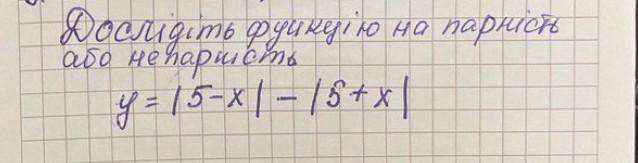 Дослідіть функцію на парність
або непарність
y = |5-x| - |5+x|